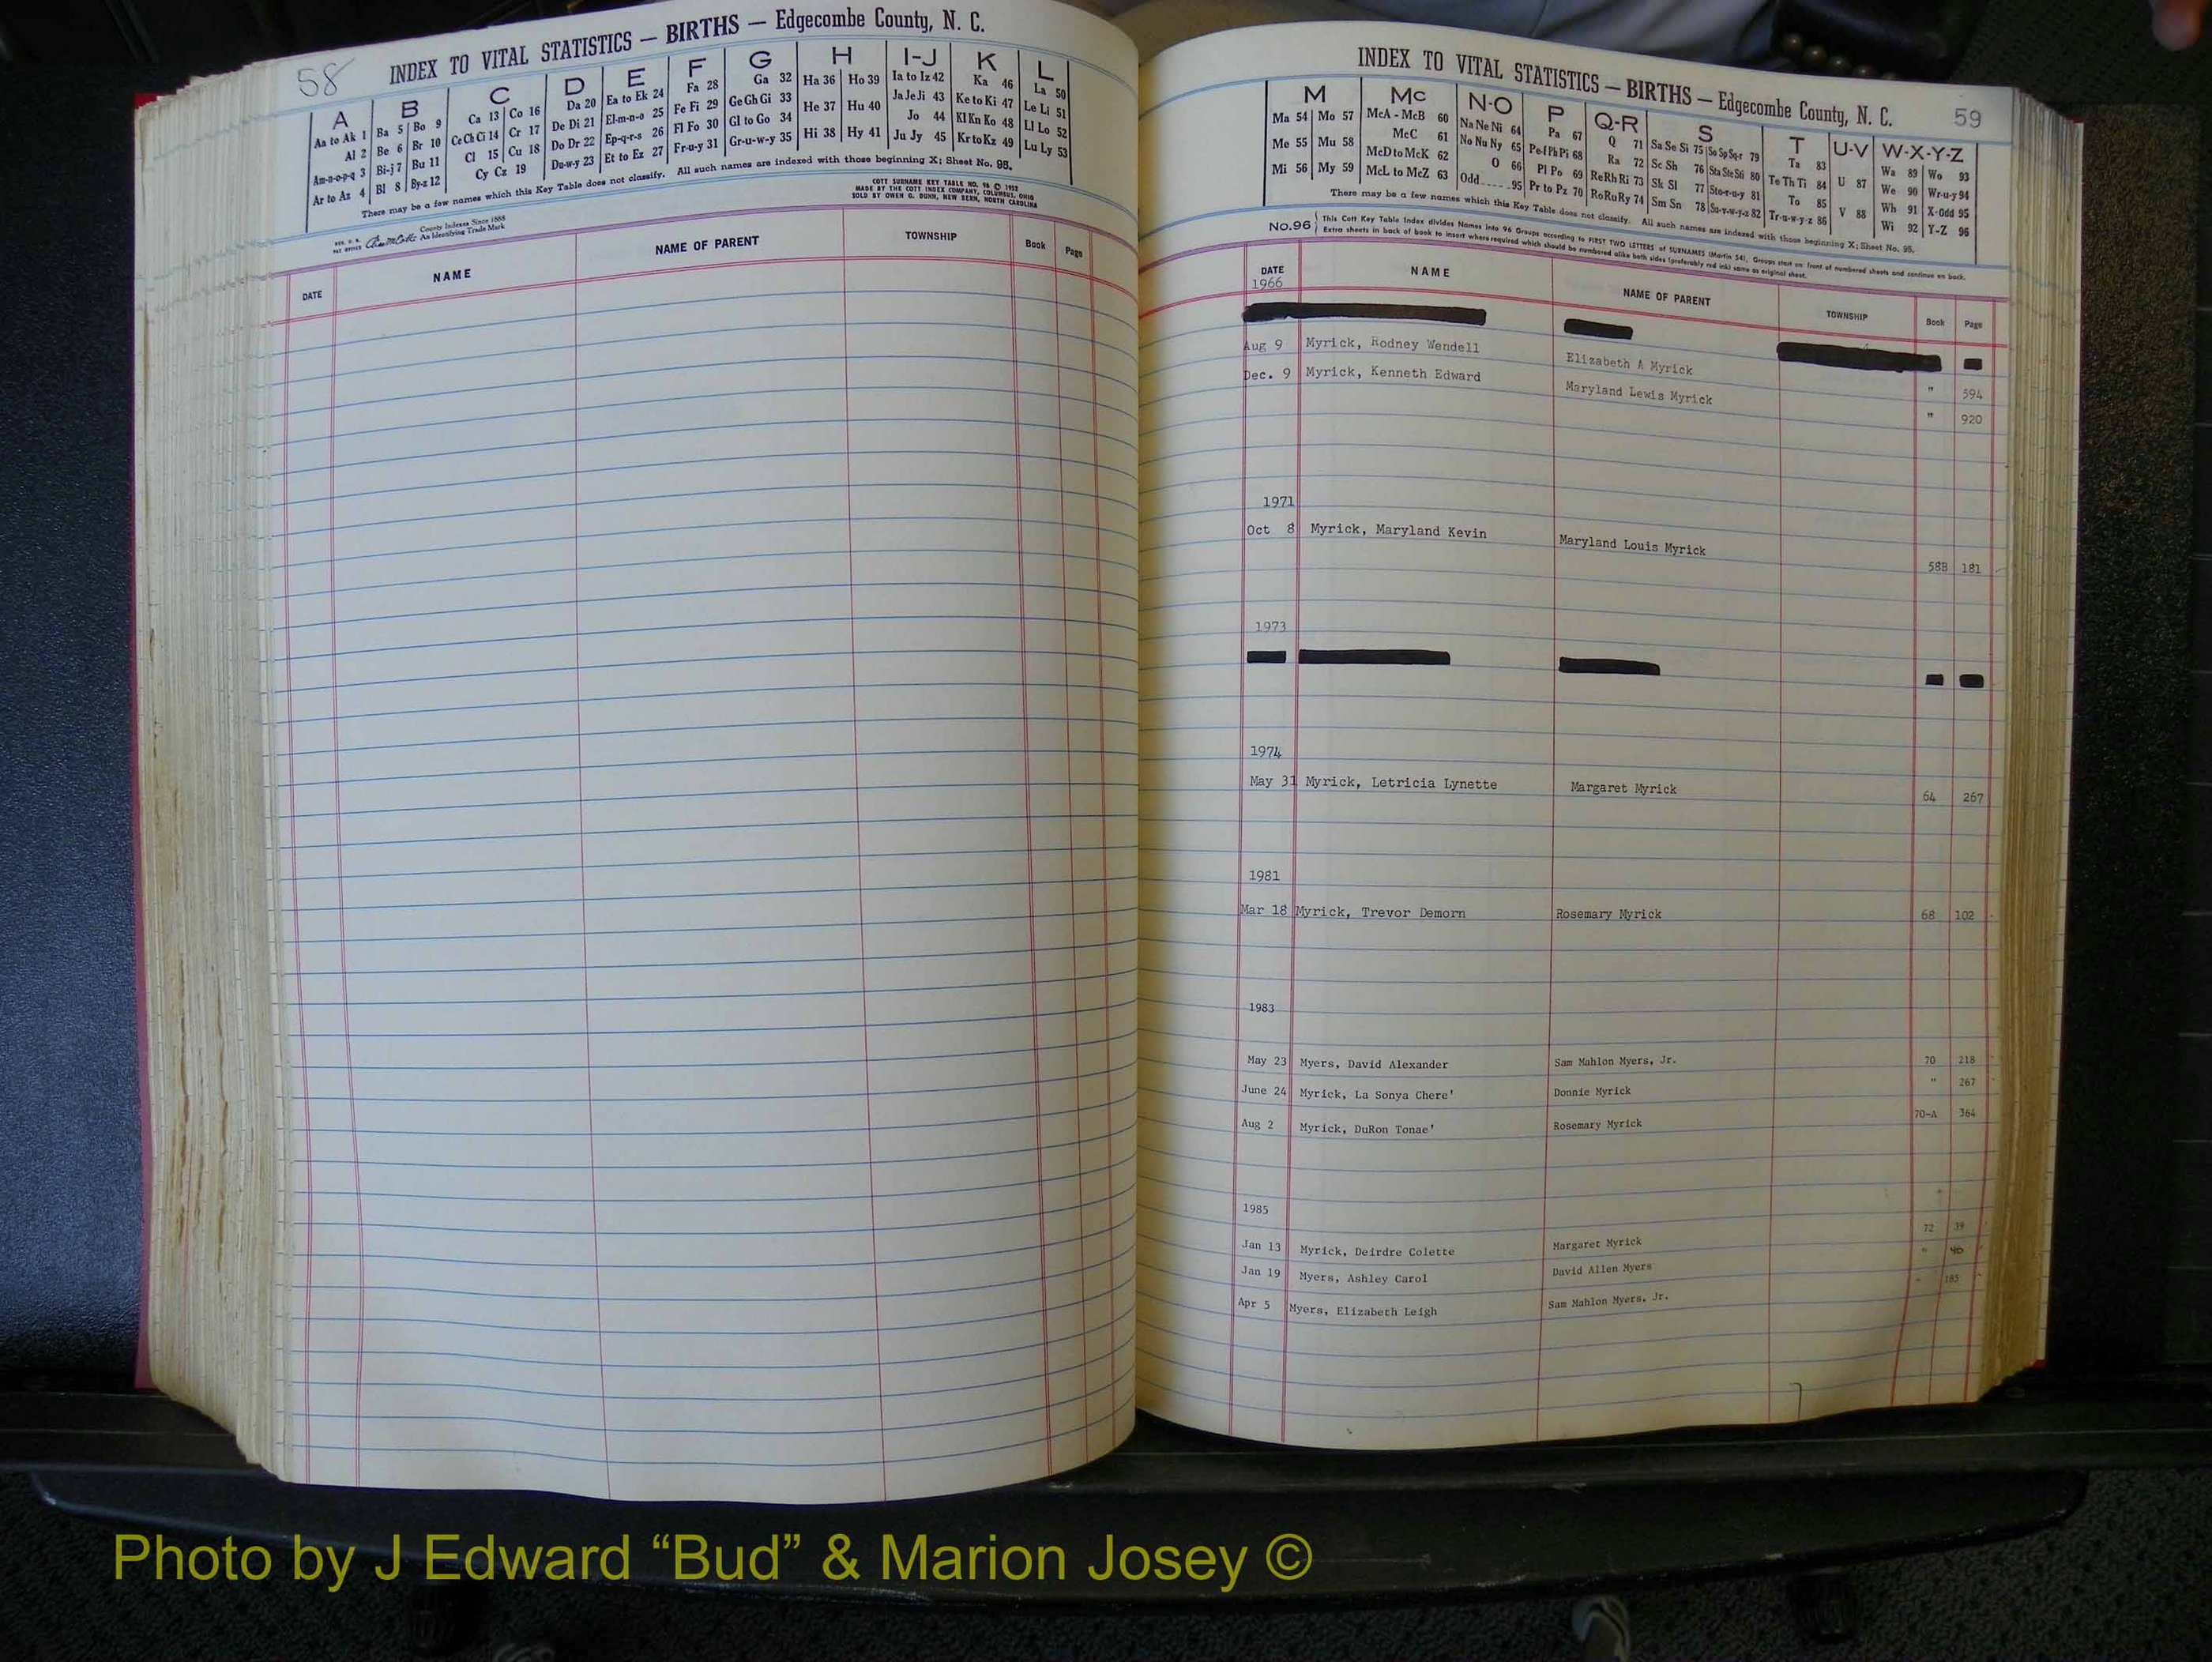 58
INDEX TO VITAL STATISTICS — BIRTHS — Edgecombe County, N. C.
A B C D E F G H I-J K L
Aa to Ak 1 Ba 5 Bo 9 Ca 13 Co 16 Da 20 Ea to Ek 24 Fa 28 Ga 32 Ha 36 Ho 39 Ia to Iz 42 Ka 46 La 50
Al 2 Be 6 Br 10 Ce Ch Ci 14 Cr 17 De Di 21 El-m-n-o 25 Fe Fi 29 Ge Gh Gi 33 He 37 Hu 40 Ja Je Ji 43 Ke to Ki 47 Le Li 51
Am-n-o-p-q 3 Bi-j 7 Bu 11 Cl 15 Cu 18 Do Dr 22 Ep-q-r-s 26 Fl Fo 30 Gl to Go 34 Hi 38 Hy 41 Jo 44 Kl Kn Ko 48 Ll Lo 52
Ar to Az 4 Bl 8 By-z 12 Cy Cz 19 Du-w-y 23 Et to Ez 27 Fr-u-y 31 Gr-u-w-y 35 Ju Jy 45 Kr to Kz 49 Lu Ly 53
There may be a few names which this Key Table does not classify. All such names are indexed with those beginning X; Sheet No. 95.
COTT SURNAME KEY TABLE NO. 96 © 1952
MADE BY THE COTT INDEX COMPANY, COLUMBUS, OHIO
SOLD BY OWEN G. DUNN, NEW BERN, NORTH CAROLINA
County Indexes Since 1888
An Identifying Trade Mark
DATE NAME NAME OF PARENT TOWNSHIP Book Page
INDEX TO VITAL STATISTICS — BIRTHS — Edgecombe County, N. C. 59
M Mc N-O P Q-R S T U-V W-X-Y-Z
Ma 54 Mo 57 McA - McB 60 Na Ne Ni 64 Pa 67 Q 71 Sa Se Si 75 So Sp Sq-r 79 Ta 83 U 87 Wa 89 Wo 93
Me 55 Mu 58 McC 61 No Nu Ny 65 Pe-f Ph Pi 68 Ra 72 Sc Sh 76 Sta Ste Sti 80 Te Th Ti 84 V 88 We 90 Wr-u-y 94
Mi 56 My 59 McD to McK 62 O 66 Pl Po 69 Re Rh Ri 73 Sk Sl 77 Sto-r-u-y 81 To 85 Wh 91 X-Odd 95
McL to McZ 63 Odd 95 Pr to Pz 70 Ro Ru Ry 74 Sm Sn 78 Su-v-w-y-z 82 Tr-u-w-y-z 86 Wi 92 Y-Z 96
There may be a few names which this Key Table does not classify. All such names are indexed with those beginning X; Sheet No. 95.
No.96 This Cott Key Table Index divides Names into 96 Groups according to FIRST TWO LETTERS of SURNAMES (Martin 54). Groups start on front of numbered sheets and continue on back.
Extra sheets in back of book to insert where required which should be numbered alike both sides (preferably red ink) same as original sheet.
DATE NAME NAME OF PARENT TOWNSHIP Book Page
1966
Aug 9 Myrick, Rodney Wendell Elizabeth A Myrick " 594
Dec. 9 Myrick, Kenneth Edward Maryland Lewis Myrick " 920
1971
Oct 8 Myrick, Maryland Kevin Maryland Louis Myrick 58B 181
1973
1974
May 31 Myrick, Letricia Lynette Margaret Myrick 64 267
1981
Mar 18 Myrick, Trevor Demorn Rosemary Myrick 68 102
1983
May 23 Myers, David Alexander Sam Mahlon Myers, Jr. 70 218
June 24 Myrick, La Sonya Chere' Donnie Myrick " 267
Aug 2 Myrick, DuRon Tonae' Rosemary Myrick 70-A 364
1985
Jan 13 Myrick, Deirdre Colette Margaret Myrick 72 39
Jan 19 Myers, Ashley Carol David Allen Myers " 40
Apr 5 Myers, Elizabeth Leigh Sam Mahlon Myers, Jr. " 185
Photo by J Edward “Bud” & Marion Josey ©